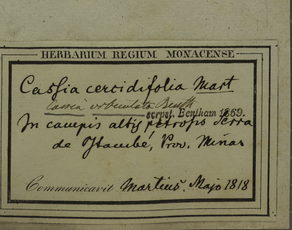 HERBARIUM REGIUM MONACENSE
Cassia cercidifolia Mart
Cassia orbiculata Benth
script. Bentham 1869.
In campis altis, petrosis Serra
de Itambé, Prov. Minar
Communicavit Martius. Majo 1818